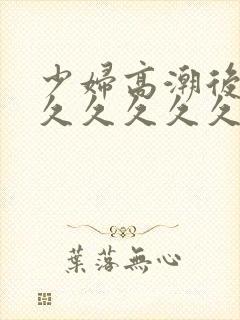 少婦高潮後
久久久久久
葉落無心